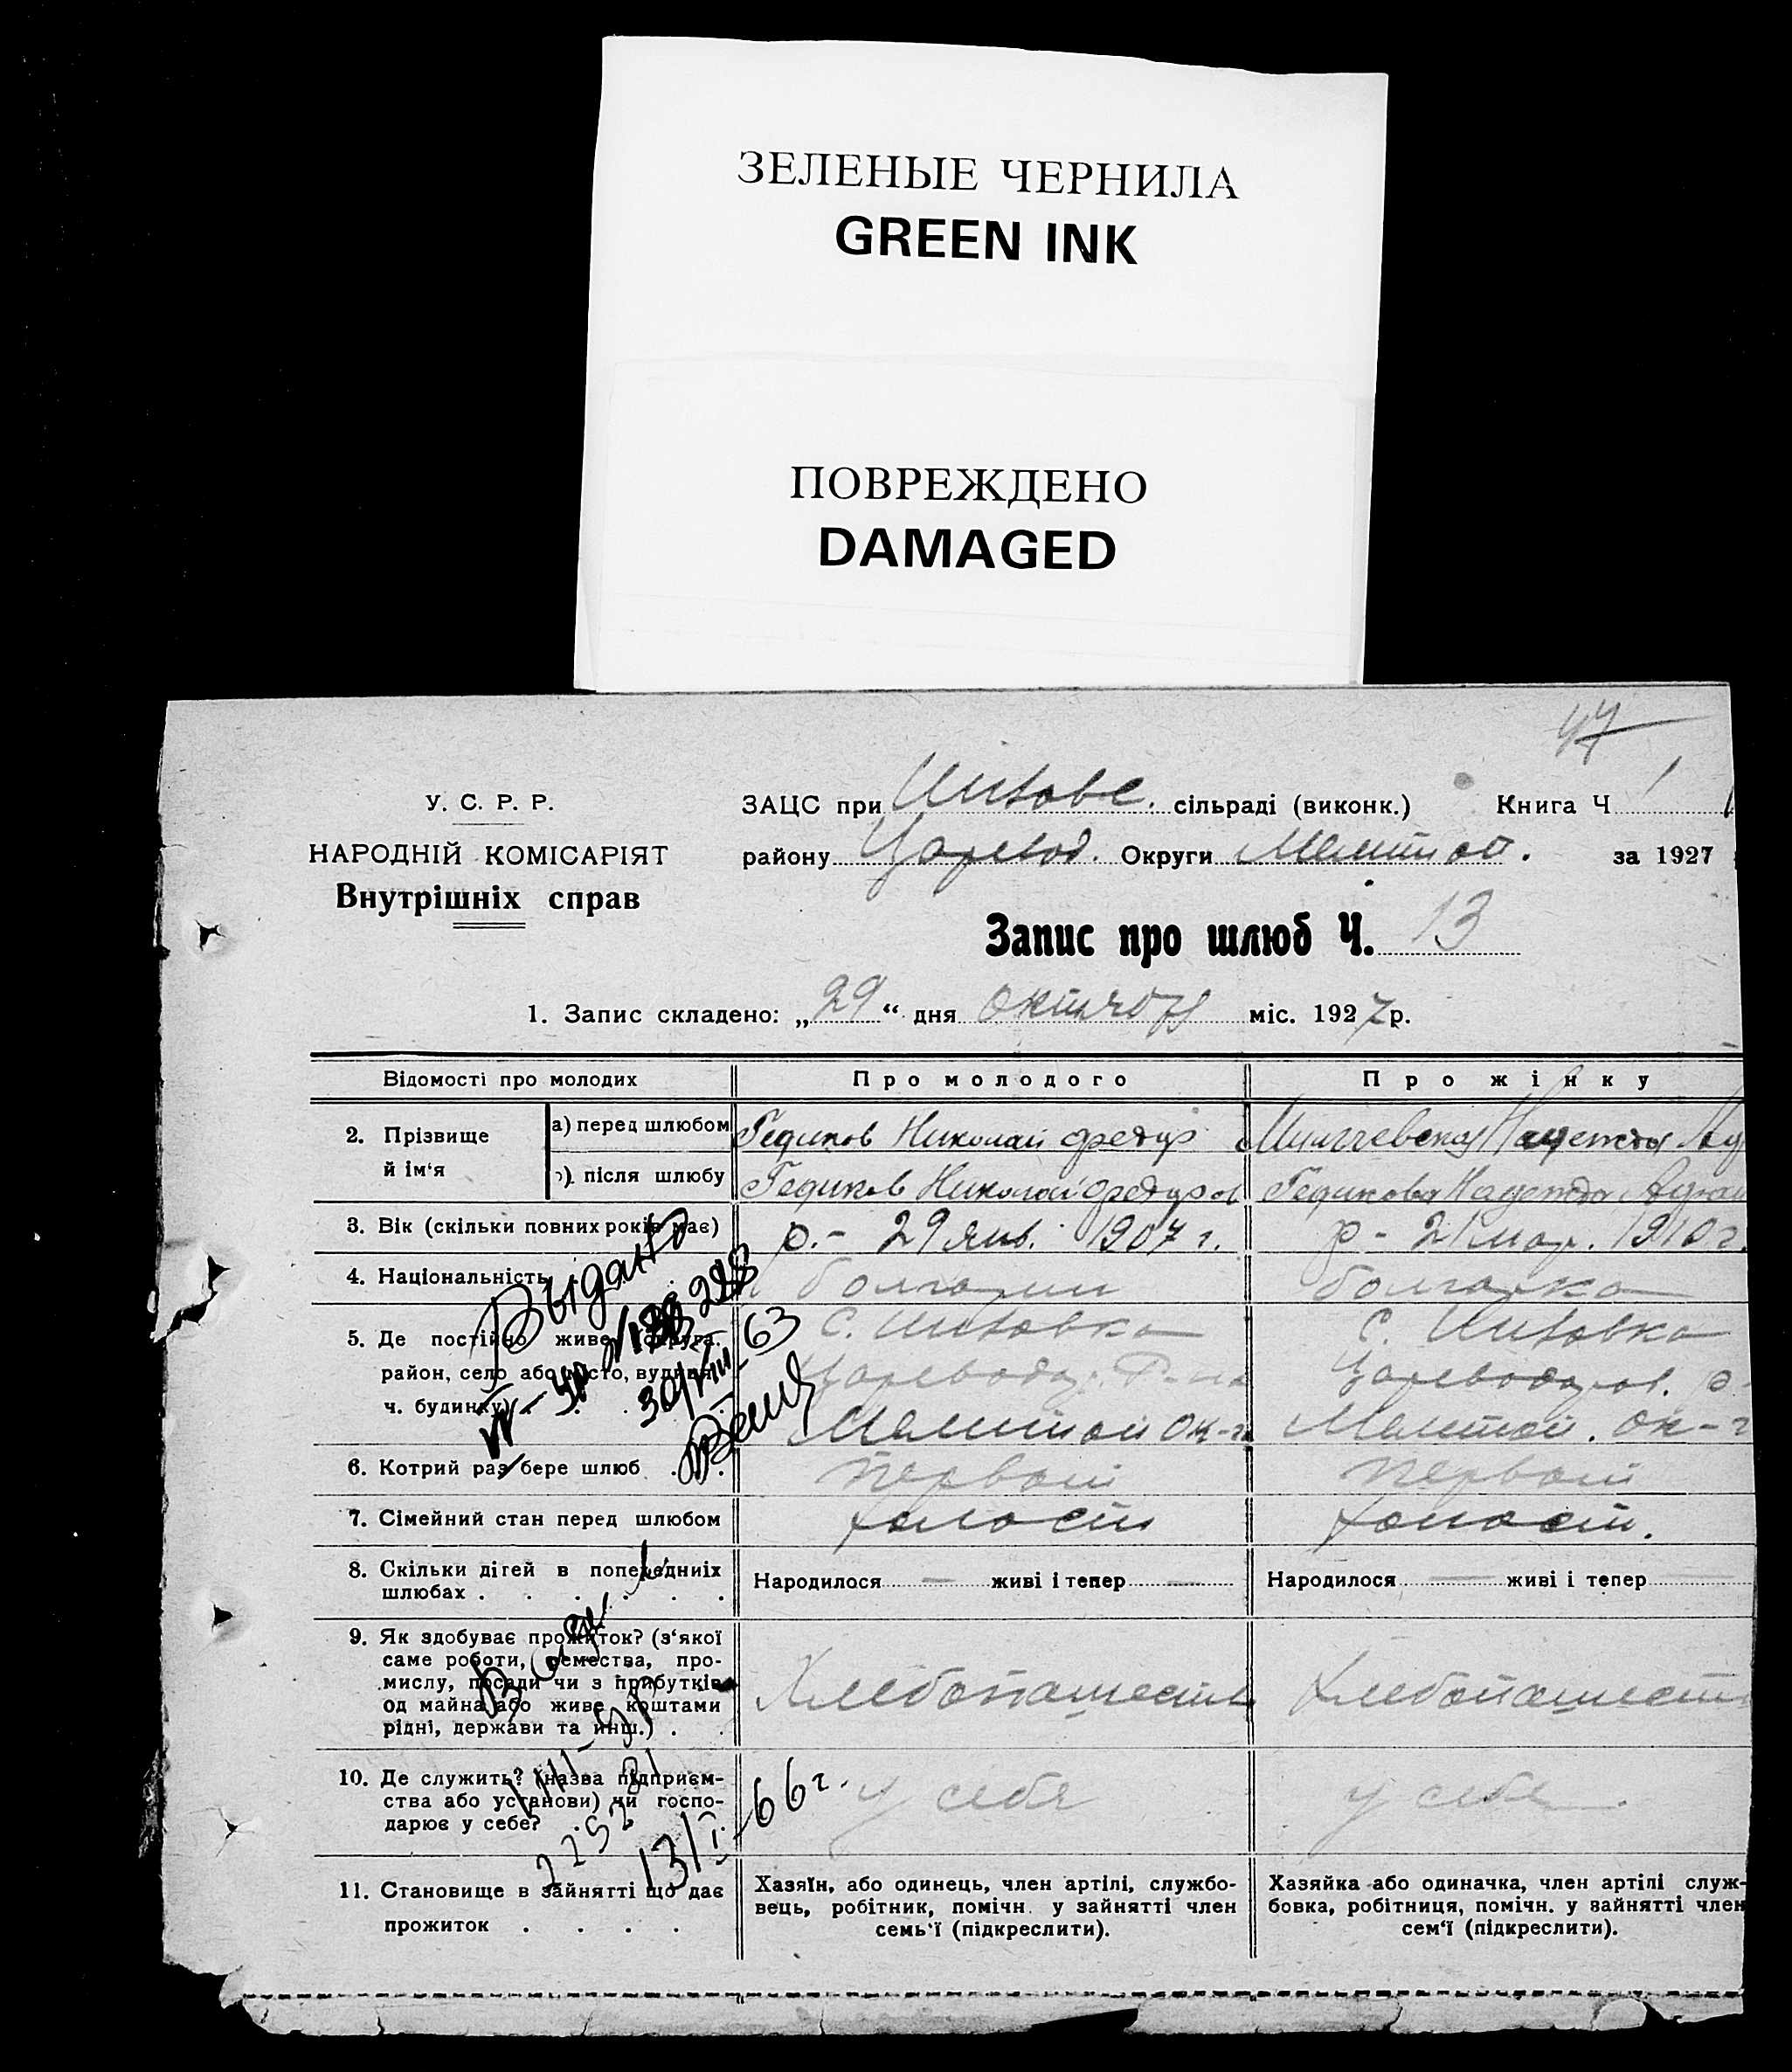 ЗЕЛЕНЫЕ ЧЕРНИЛА
GREEN INK
ПОВРЕЖДЕНО
DAMAGED
47
У. С. Р. Р.
НАРОДНІЙ КОМІСАРІЯТ
Внутрішніх справ
ЗАЦС при сільраді (виконк.) Книга Ч 1
району Царевод. Округи Мелитоп. за 1927
Запис про шлюб Ч. 13
1. Запис складено: „29“ дня октября міс. 1927 р.
Відомості про молодих Про молодого Про жінку
2. Прізвище й ім‘я
а) перед шлюбом Гедиков Николай Федор Надежда
після шлюбу Гедиков Николай Федоров Гедикова Надежда
3. Вік (скільки повних років має) р.- 29 янв. 1907 г. р - 21 мар. 1910 г.
4. Національність болгарин болгарка
5. Де постійно живе (округа, район, село або місто, вулиця, ч. будинку)
с. с.
Мелитоп ок-г Мелитоп. ок-г
6. Котрий раз бере шлюб первый первый
7. Сімейний стан перед шлюбом холост холост.
8. Скільки дітей в попередниіх шлюбах . . . . .
Народилося — живі і тепер — Народилося — живі і тепер —
9. Як здобуває прожиток? (з‘якої
саме роботи, ремества, про-
мислу, посади чи з прибутків
од майна або живе коштами
рідні, держави та инш.) .
Хлебопашеств Хлебопашеств
10. Де служить? (назва підприєм-
ства або установи) чи госпо-
дарює у себе?
у себя у себя
11. Становище в зайнятті що дає
прожиток . . . .
Хазяїн, або одинець, член артілі, службо-
вець, робітник, помічн. у зайнятті член
семь‘ї (підкреслити).
Хазяйка або одиначка, член артілі служ-
бовка, робітниця, помічн. у зайнятті член
сем‘ї (підкреслити).
Выдано
30/VIII-63
13/I-66 г.